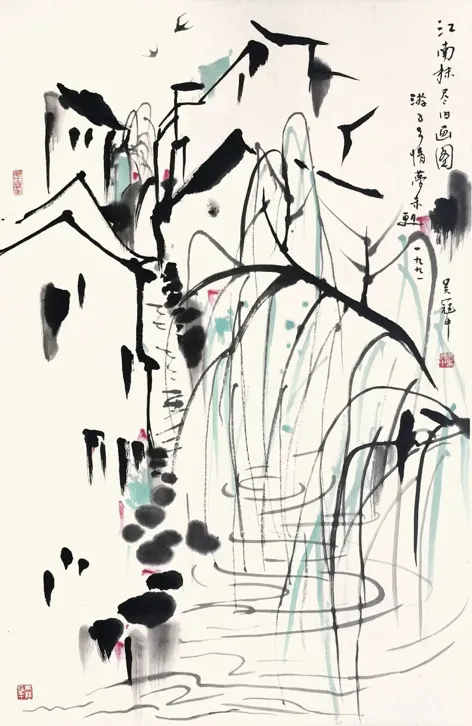 江南抹尽旧画图
游子乡情梦未
一九九一
吴冠中